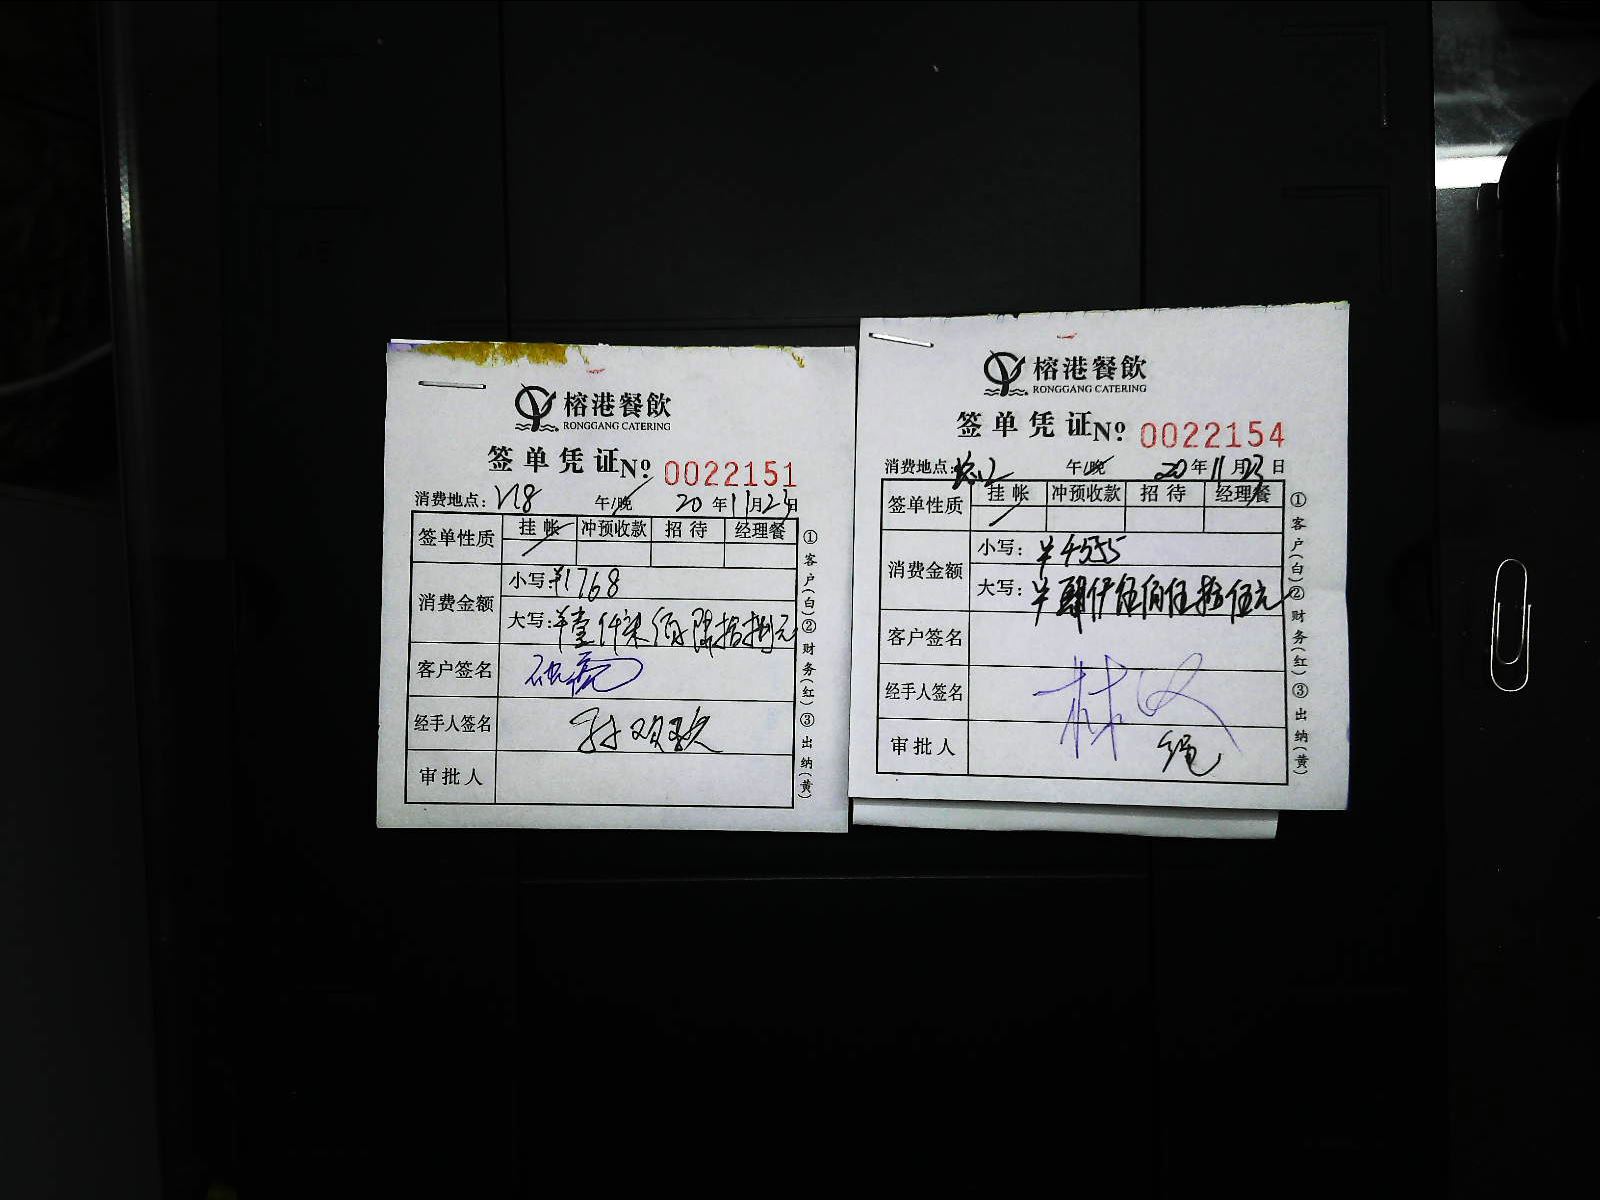 榕港餐飲
RONGGANG CATERING
签单凭证 Nº 0022151
消费地点: V18 午/晚 20年11月23日
签单性质 挂帐 冲预收款 招待 经理餐
消费金额 小写: ¥1768
大写: ¥壹仟柒佰陆拾捌元
客户签名
经手人签名
审批人
①客户(白)②财务(红)③出纳(黄)
榕港餐飲
RONGGANG CATERING
签单凭证 Nº 0022154
消费地点: 午/晚 20年11月23日
签单性质 挂帐 冲预收款 招待 经理餐
消费金额 小写: ¥4555
大写: ¥肆仟伍佰伍拾伍元
客户签名
经手人签名 林
审批人
①客户(白)②财务(红)③出纳(黄)